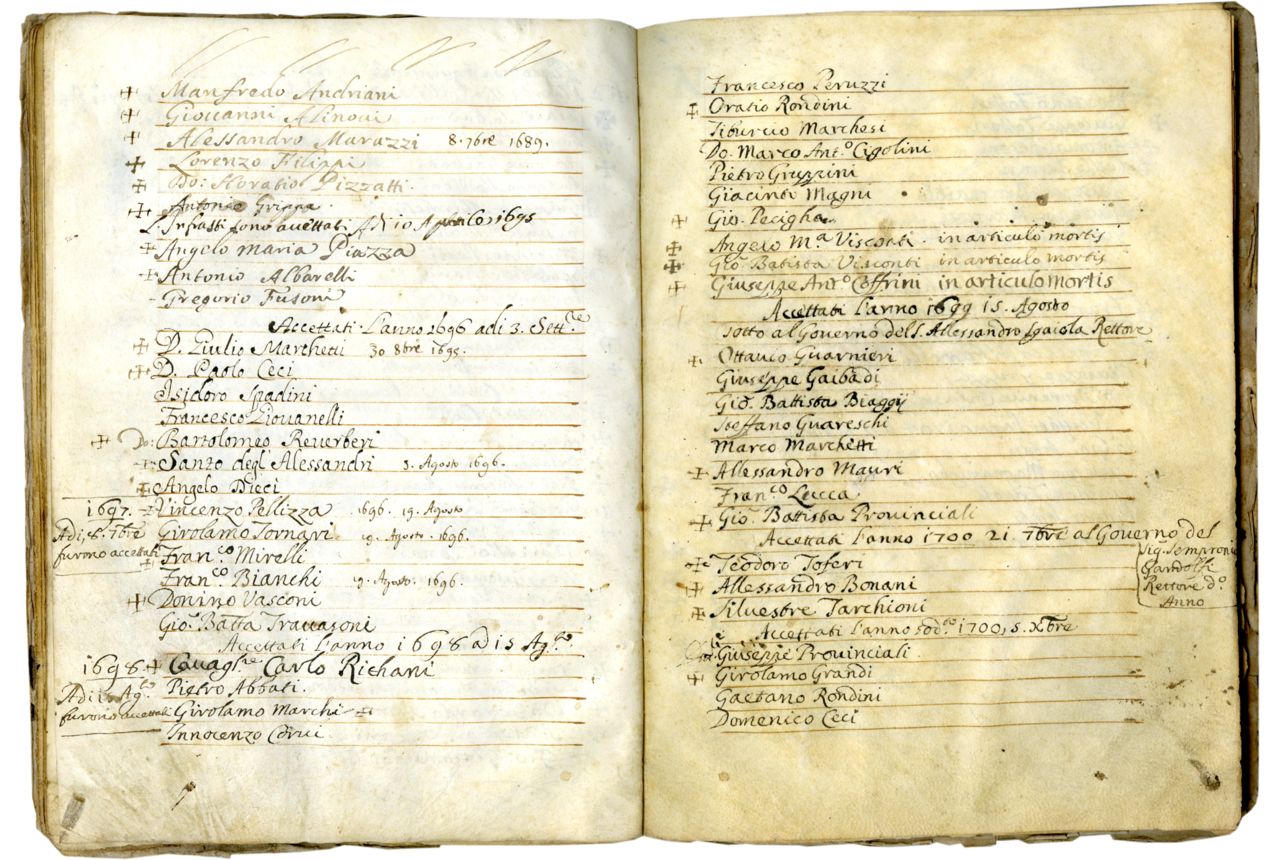 Manfredo Andriani
Giovanni Alinovi
Alessandro Marazzi 8. 7bre 1689.
Lorenzo Filippi
Do: Horatio Pizzatti.
Antonio Grippa.
L'Infratti sono accettati Adi 10 1695
Angelo Maria Piazza
Antonio Albarelli
Gregorio Fusoni
Accettati L'anno 1696 adi 3. Sett.re
D. Giulio Marchetti 30 8bre 1695.
D. Paolo Ceci
Isidoro Spadini
Francesco Giovanelli
Do: Bartolomeo Reverberi
Santo degl'Alessandri 3. Agosto 1696.
Angelo Dieci
1697. Vincenzo Pellizza 1696. 19. Agosto
Adi, 8. 7bre Girolamo Tornari 19. Agosto. 1696.
furono accettati Fran.co Mirelli
Fran.co Bianchi 9. Agosto. 1696.
Donino Vasconi
Gio: Batta Travasoni
Accettati L'anno 1698 a di 15 Ag.to
1698. Cavag.re Carlo Richani
Adi 15 Ag.to Pietro Abbati.
furono accettati Girolamo Marchi
Innocenzo Corvi
Francesco Peruzzi
Oratio Rondini
Tiburcio Marchesi
Do. Marco Ant.o Cigolini
Pietro Gruzzini
Giacinti Magni
Gio. Pecigha
Angelo M.a Visconti in articulo mortis
Gio. Batista Visconti in articulo mortis
Giuseppe Ant.o Coffrini in articulo mortis
Accettati L'anno 1699 15. Agosto
sotto al Governo del S. Allessandro Rettore
Ottavio Guarnieri
Giuseppe Gaibadi
Gio. Battista Biaggij
Steffano Guareschi
Marco Marchetti
Allessandro Mauri
Fran.co Lucca
Gio. Battista Provinciali
Accettati l'anno 1700 21. 7bre al Governo del
Sig. Sempronio
Gandolfi
Rettore d.o
Anno
Teodoro Toferi
Allessandro Bonani
Silvestre Tarchioni
Accettati l'anno sod.o 1700, 5. Xbre
Giuseppe Provinciali
Girolamo Grandi
Gaetano Rondini
Domenico Ceci